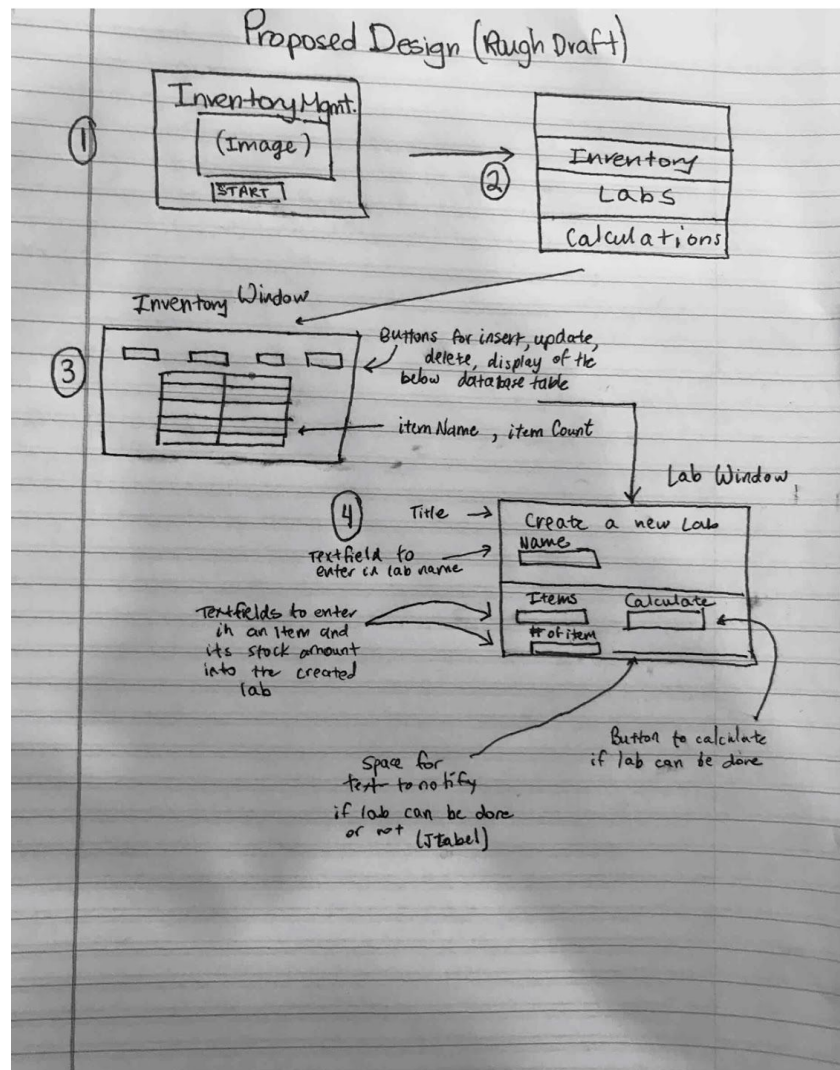 Proposed Design (Rough Draft)
1
Inventory Mgmt.
(Image)
START
2
Inventory
Labs
Calculations
Inventory Window
3
Buttons for insert, update,
delete, display of the
below database table
item Name, item Count
Lab Window
4
Title
Create a new Lab
Name
Textfield to
enter in lab name
Items
Calculate
# of item
Textfields to enter
in an item and
its stock amount
into the created
lab
Button to calculate
if lab can be done
Space for
text to notify
if lab can be done
or not (JLabel)